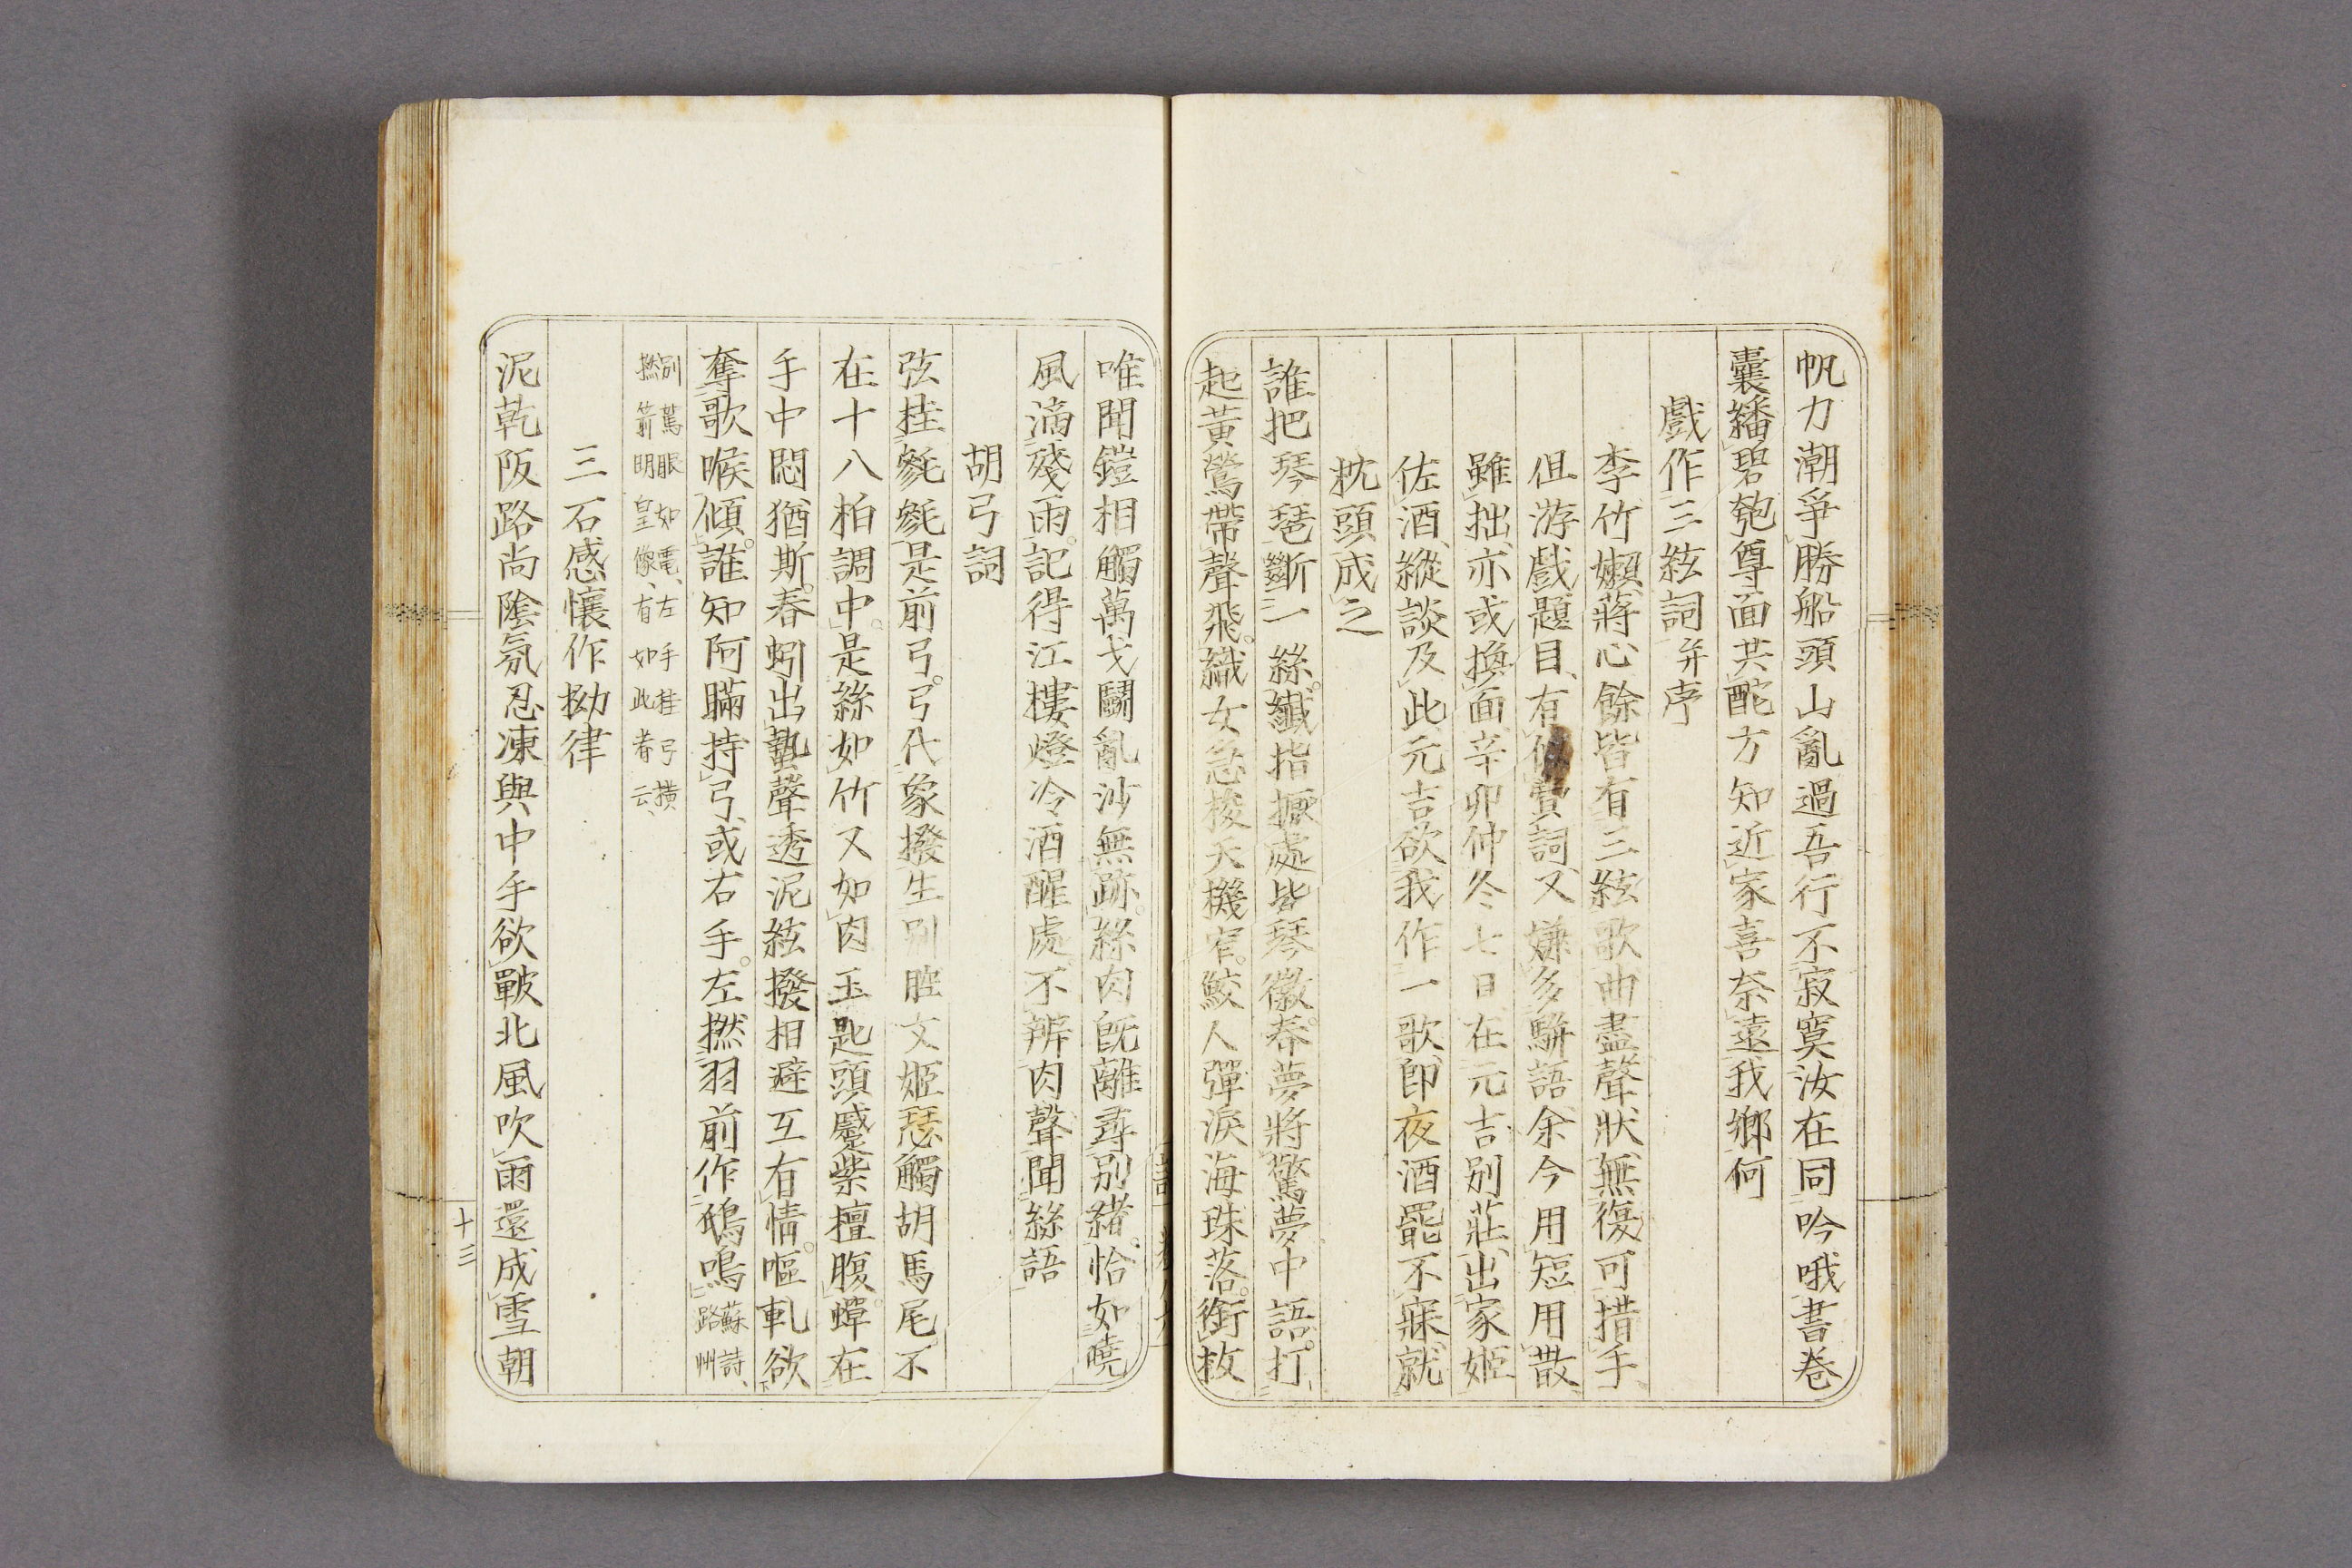 帆力潮爭勝船頭山亂過吾行不寂寞汝在同吟哦書卷
囊繙碧匏尊面共酡方知近家喜奈遠我鄉何
戲作三絃詞并序
李竹嬾蔣心餘皆有三絃歌曲盡聲狀無復可措手
但游戲題目有似賓詞又嫌多駢語余今用短用散
雖拙亦或換面辛卯仲冬七日在元吉別莊出家姬
佐酒縱談及此元吉欲我作一歌即夜酒罷不寐就
枕頭成之
誰把琴琶斷一絲纖指掀處皆琴徽春夢將驚夢中語打
起黃鶯帶聲飛織女急梭天機窄鮫人彈淚海珠落銜枚
唯聞鎧相觸萬戈鬭亂沙無跡絲肉既離尋別緒恰如曉
風滴殘雨記得江樓燈冷酒醒處不辨肉聲聞絲語
胡弓詞
弦挂毿毿是前弓弓代象撥生別腔文姬瑟觸胡馬尾不
在十八柏調中是絲如竹又如肉玉匙頭蹙紫檀腹蟬在
手中悶猶斯春蚓出蟄聲透泥絃撥相避互有情嘔軋欲
奪歌喉傾誰知阿瞞持弓或右手左撚羽前作鴟鳴蘇詩路州
別駕眼如電左手挂弓橫
撚箭明皇像有如此者云
三石感懷作拗律
泥乾阪路尚陰氛忍凍輿中手欲皸北風吹雨還成雪朝
十三